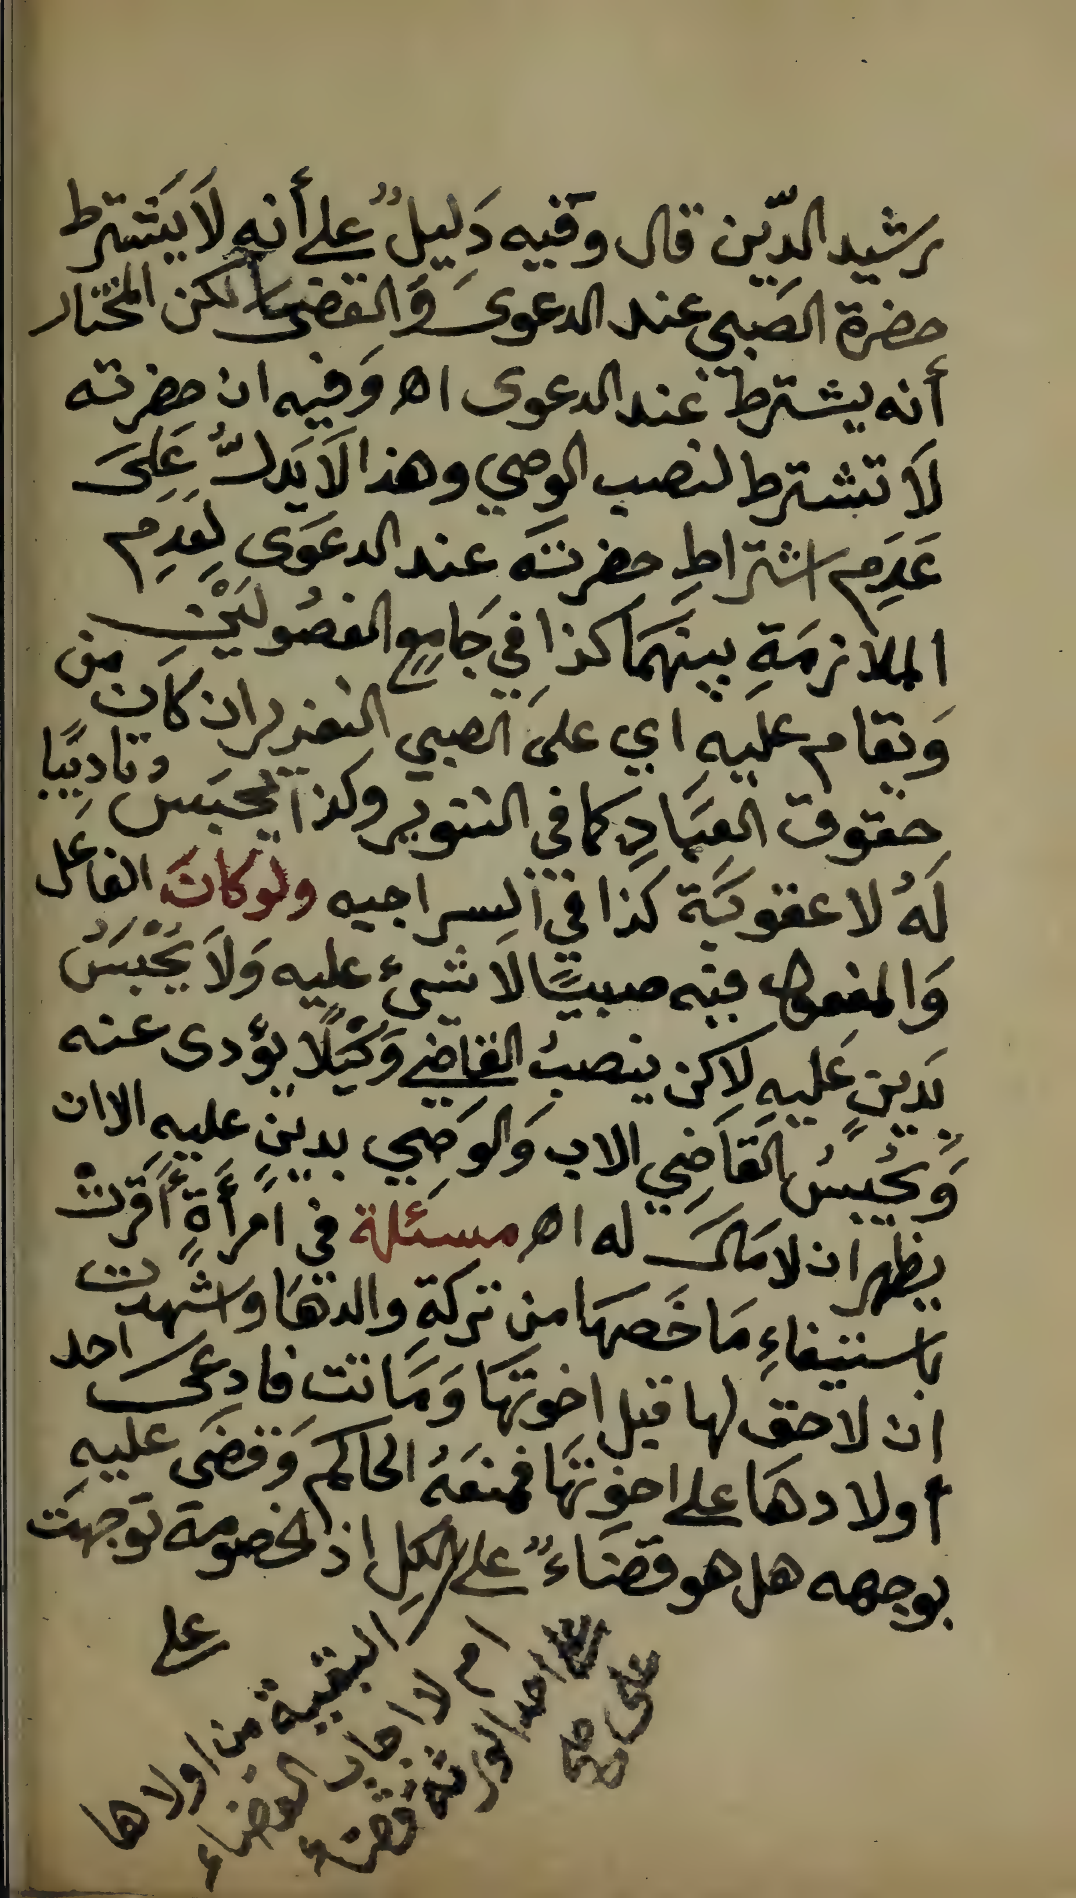 رشيد الدّين قال وفيه دَليلٌ على أنه لاَ يَشترط
حضرة الصَبي عند الدعوىَ وَالقضا لكن المختار
أنه يشترط عند الدعوى اهـ وَفيه ان حضرته
لاَ تشترط لنصب الوصي وهذا لاَ يَدلُّ عَلىَ
عَدَمِ اشتراطِ حضرته عند الدعوَى لِعَدِمِ
الملازمَةِ بينهمَا كذا في جَامع الفصُوليْنِ
وَيقام عليه اي على الصبي التعزير ان كانَ من
حقوق العبَادِ كما في التنوير وكذا يحبَس وتاديبًا
لَهُ لا عقوبَة كَذا في السراجيه ولوكانَ الفاعل
وَالمفعول فيه صبيًا لاَ شيء عليه وَلاَ يُحْبَسُ
بدَينٍ عَليهِ لاكن ينصبُ القاضي وَكيْلًا يؤدى عنه
وَيُحْبَسُ القَاضِي الاب وَالوَصي بدينٍ عليه الا ان
يظهر ان لا مَالَ له اهـ مسئلة في امرأةٍ أقرتْ
باستيفاءِ مَا خَصهَا من تركةِ والدتهَا واشهدت
ان لا حق لها قبل اخوتهَا وَمَاتت فادعىَ احد
أولادهَا على اخوَتهَا فمنعَهُ الحاكم وَقضَى عليه
بوجهه هل هو قضَاءٌ على الكلِ اذ الخصومة توجهَت
على
البقية من اولاها
ام لا اجاب القضاء
على احد الورثة قضاء
على